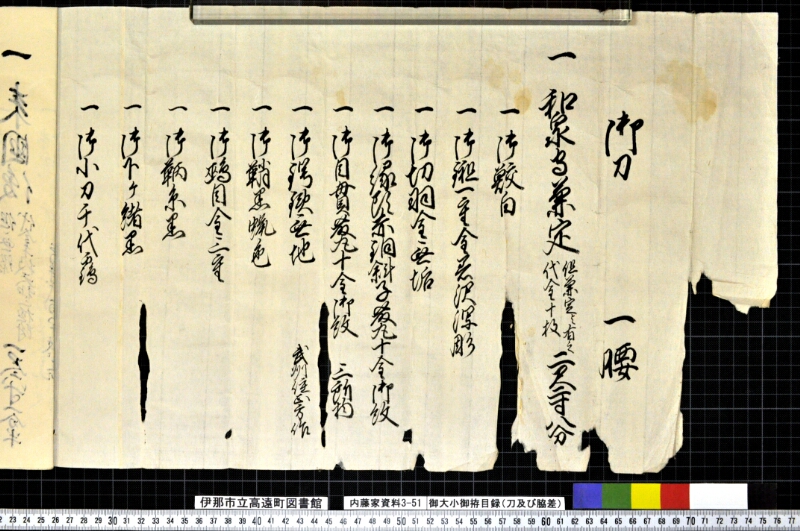 御刀 一腰
一 和泉守兼定 但兼定ト有之 代金十枚 二尺三寸八分
一 御鮫白
一 御鎺一重金着沢瀉彫
一 御切羽金無垢
一 御縁頭赤銅斜子裁九十金御紋
一 御目貫裁九十金御紋 三所物
一 御鍔鉄無地 武州住正方作
一 御鞘黒蝋色
一 御鵐目金二重
一 御柄糸黒
一 御下ケ緒黒
一 御小刀千代鶴
一 来国俊
伊那市立高遠町図書館
内藤家資料3-51 御大小御拵目録(刀及び脇差)